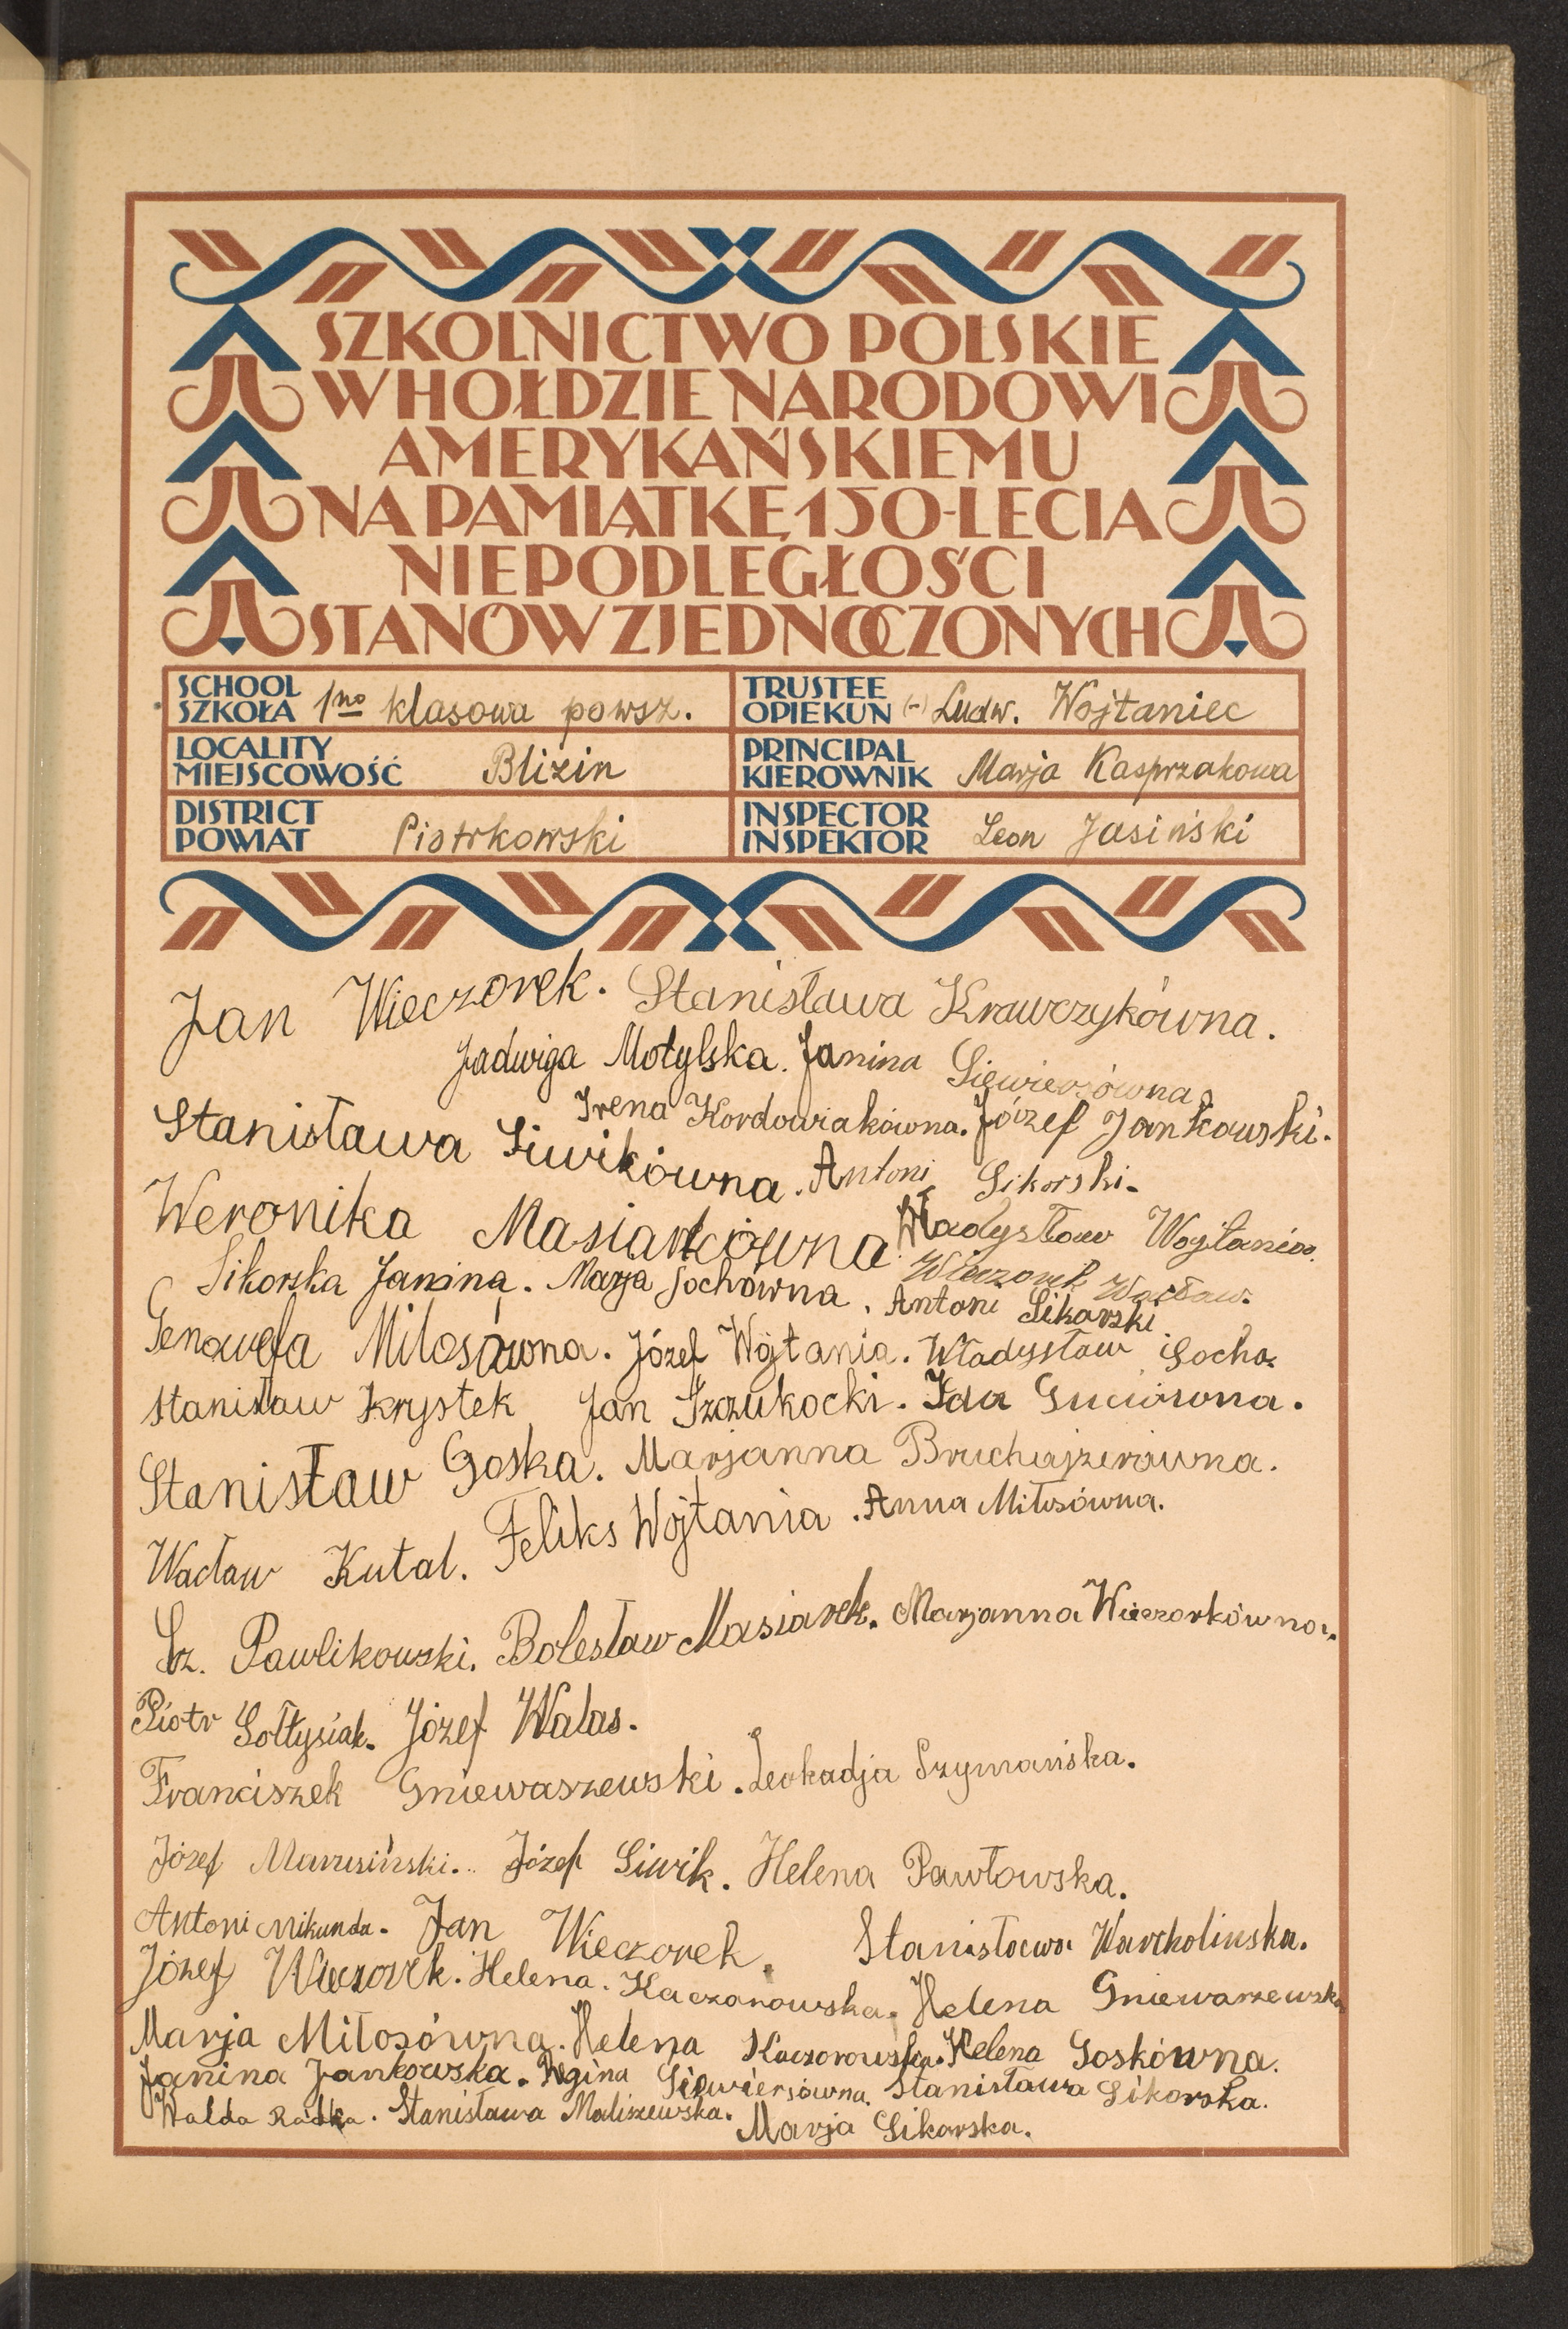 SZKOLNICTWO POLSKIE
W HOŁDZIE NARODOWI
AMERYKAŃSKIEMU
NA PAMIĄTKĘ 150-LECIA
NIEPODLEGŁOŚCI
STANÓW ZJEDNOCZONYCH
SCHOOL
SZKOŁA 1no klasowa powsz.
TRUSTEE
OPIEKUN (-) Ludw. Wojtaniec
LOCALITY
MIEJSCOWOŚĆ Blizin
PRINCIPAL
KIEROWNIK Marja Kasprzakowa
DISTRICT
POWIAT Piotrkowski
INSPECTOR
INSPEKTOR Leon Jasiński
Jan Wieczorek. Stanisława Krawczykówna.
Jadwiga Motylska. Janina Siewierzówna
Irena Kordowiakówna. Józef Jankowski.
Stanisława Siwikówna. Antoni Sikorski.
Weronika Masiarkówna. Władysław Wojtania.
Wieczorek Wacław.
Sikorska Janina. Marja Sochówna. Antoni Sikorski.
Genowefa Miłosówna. Józef Wojtania. Władysław Socha.
Stanisław Krystek Jan Szczukocki. Ida Guciówna.
Stanisław Goska. Marjanna Bruchajzerówna.
Wacław Kutal. Feliks Wojtania. Anna Miłosówna.
Cz. Pawlikowski. Bolesław Masiarek. Marjanna Wieczorkówna.
Piotr Sołtysiak. Józef Walas.
Franciszek Gniewaszewski. Leokadja Szymańska.
Józef Marusiński. Józef Siwik. Helena Pawłowska.
Antoni Mikunda. Jan Wieczorek. Stanisława Warcholinska.
Józef Wieczorek. Helena. Kaczorowska. Helena Gniewaszewska
Marja Miłosówna. Helena Kaczorowska. Helena Goskówna.
Janina Jankowska. Regina Siewiersówna. Stanisława Sikorska.
Walda Radka. Stanisława Maliszewska. Marja Sikorska.